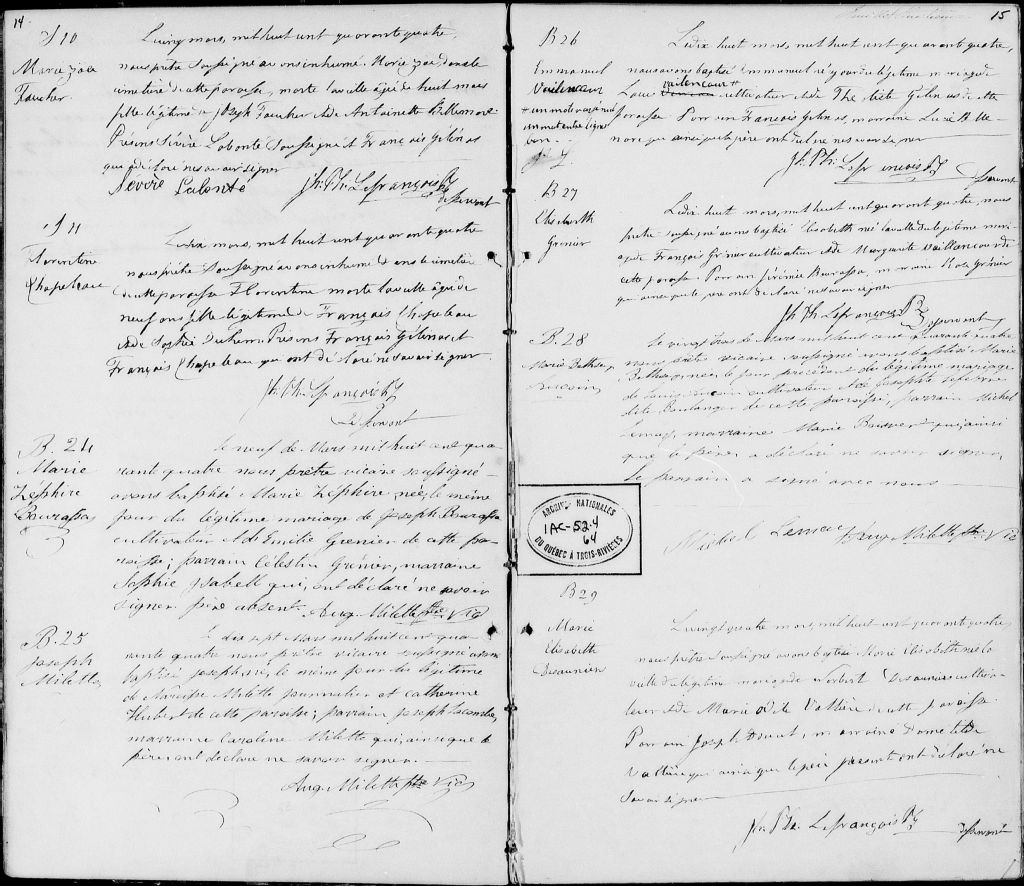 14
S 10
Marie Zoé
Faucher
Le cinq mars, mil huit cent quarante quatre,
nous prêtre soussigné avons inhumé Marie Zoé dans le
cimetière de cette paroisse, morte la veille âgée de huit mois
fille légitime de Joseph Faucher & de Antoinette Bellemare
Présens Sévère Labonté soussigné et François Gélinas
qui a déclaré ne savoir signer
Sévère Labonté Jh. Ph. Lefrançois Ptr
desservant
S 11
Florentine
Chapeleau
Le dix mars, mil huit cent quarante quatre,
nous prêtre soussigné avons inhumé dans le cimetière
de cette paroisse Florentine morte la veille âgée de
neuf ans fille légitime de François Chapeleau
& de Sophie Duhem Présens François Gélinas et
François Chapeleau qui ont déclaré ne savoir signer.
Jh. Ph. Lefrançois Ptr
Desservant
B. 24
Marie
Zéphire
Bourassa
Le neuf de Mars mil huit cent qua-
rant quatre nous prêtre vicaire soussigné
avons baptisé Marie Zéphire, née, le même
jour du légitime mariage de Joseph Bourassa
cultivateur & de Emilie Grenier de cette pa-
roisse; parrain Célestin Grénier, marraine
Sophie Isabell qui, ont déclaré ne savoir
signer père absent. Aug. Milette Ptre Vic
B. 25
Joseph
Milette
Le dix sept Mars mil huit cent qua-
rante quatre nous prêtre vicaire soussigné avons
baptisé Joseph né, le même jour du légitime
de Narcisse Milette journalier et catherine
Hubert de cette paroisse; parrain Joseph Lacombe,
marraine Caroline Milette qui, ainsi que le
père, ont déclaré ne savoir signer. —
Aug. Milette Ptre Vic
15
B 26
Emmanuel
Vailencour
+ un mot rayé nul
un mot entre ligne
bon.
Le dix huit mars, mil huit cent quarante quatre,
nous avons baptisé Emmanuel né ce jour du légitime mariage de
Vailencourt +
Louis cultivateur & de Thecliste Gélinas de cette
paroisse Parrain François Gélinas, marraine Lucie Belle-
mare qui ainsi que le père ont déclaré ne savoir signer
Jh. Ph. Lefrançois Ptr
desservant
B 27
Elisabeth
Grénier
Le dix huit mars, mil huit cent quarante quatre, nous
prêtre soussigné avons baptisé Elisabeth né la veille du légitime mari-
age de François Grénier cultivateur & de Marguerite Vaillancour de
cette paroisse Parrain Jérémie Bourassa, marraine Rose Grénier
qui ainsi que le père ont déclaré ne savoir signer
Jh Ph Lefrançois Ptr
desservant
B. 28
Marie Bethsé
Le vingt trois de Mars mil huit cent quarante quatre
nous prêtre vicaire soussigné avons baptisé Marie
Bethsé, née, le jour précédent du légitime mariage
de cultivateur & de Josephte
dite Boulanger de cette paroisse, parrain Michel
Lemay, marraine Marie qui, ainsi
que le père, a déclaré ne savoir signer,
le parrain a signé avec nous
Michel Lemay Aug Milette Ptre Vic
ARCHIVES NATIONALES
1AC-52.4
64
DU QUÉBEC À TROIS-RIVIÈRES
B 29
Marie
Elisabette
Desaunier
Le vingt quatre mars, mil huit cent quarante quatre,
nous prêtre soussigné avons baptisé Marie Elisabette née la
veille du légitime mariage de Norbert Desaunier cultiva-
teur & de Marie Odile Vallière de cette paroisse.
Parrain Joseph Doucet, marraine Domitilde
Vallière qui ainsi que le père présent ont déclaré ne
savoir signer
Jh. Ph. Lefrançois Ptr
desservant